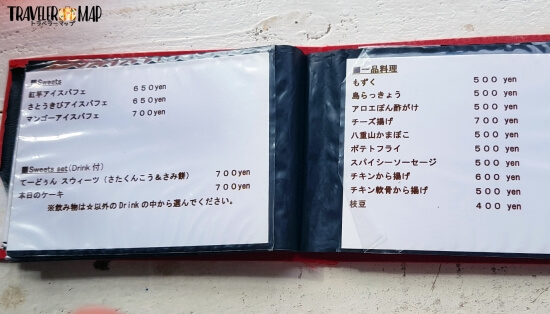 TRAVELER MAP
トラベラーマップ
■Sweets
紅芋アイスパフェ 650yen
さとうきびアイスパフェ 650yen
マンゴーアイスパフェ 700yen
■Sweets set(Drink 付)
てーどぅん スウィーツ(さたくんこう&さみ餅) 700yen
本日のケーキ 700yen
※飲み物は☆以外のDrinkの中から選んでください。
■一品料理
もずく 500 yen
島らっきょう 500 yen
アロエぽん酢がけ 500 yen
チーズ揚げ 700 yen
八重山かまぼこ 500 yen
ポテトフライ 500 yen
スパイシーソーセージ 500 yen
チキンから揚げ 600 yen
チキン軟骨から揚げ 500 yen
枝豆 400 yen